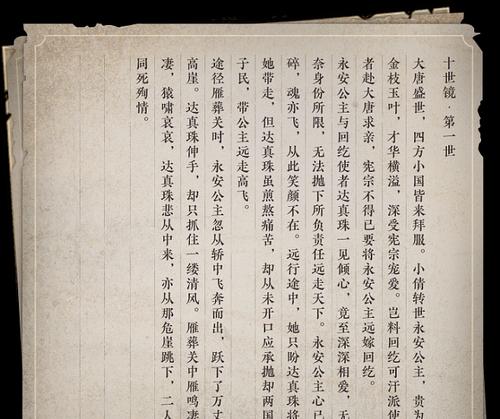 十世镜·第一世
大唐盛世，四方小国皆来拜服。小倩转世永安公主，贵为
金枝玉叶，才华横溢，深受宪宗宠爱。岂料回纥可汗派使
者赴大唐求亲，宪宗不得已要将永安公主远嫁回纥。
永安公主与回纥使者达真珠一见倾心，竟至深深相爱，无
奈身份所限，无法抛下所负责任远走天下。永安公主心已
碎，魂亦飞，从此笑颜不在。远行途中，她只盼达真珠将
她带走，但达真珠虽煎熬痛苦，却从未开口应承抛却两国
子民，带公主远走高飞。
途径雁葬关时，永安公主忽从轿中飞奔而出，跃下了万丈
高崖。达真珠伸手，却只抓住一缕清风。雁葬关中雁鸣凄
凄，猿啸哀哀，达真珠悲从中来，亦从那危崖跳下，二人
同死殉情。